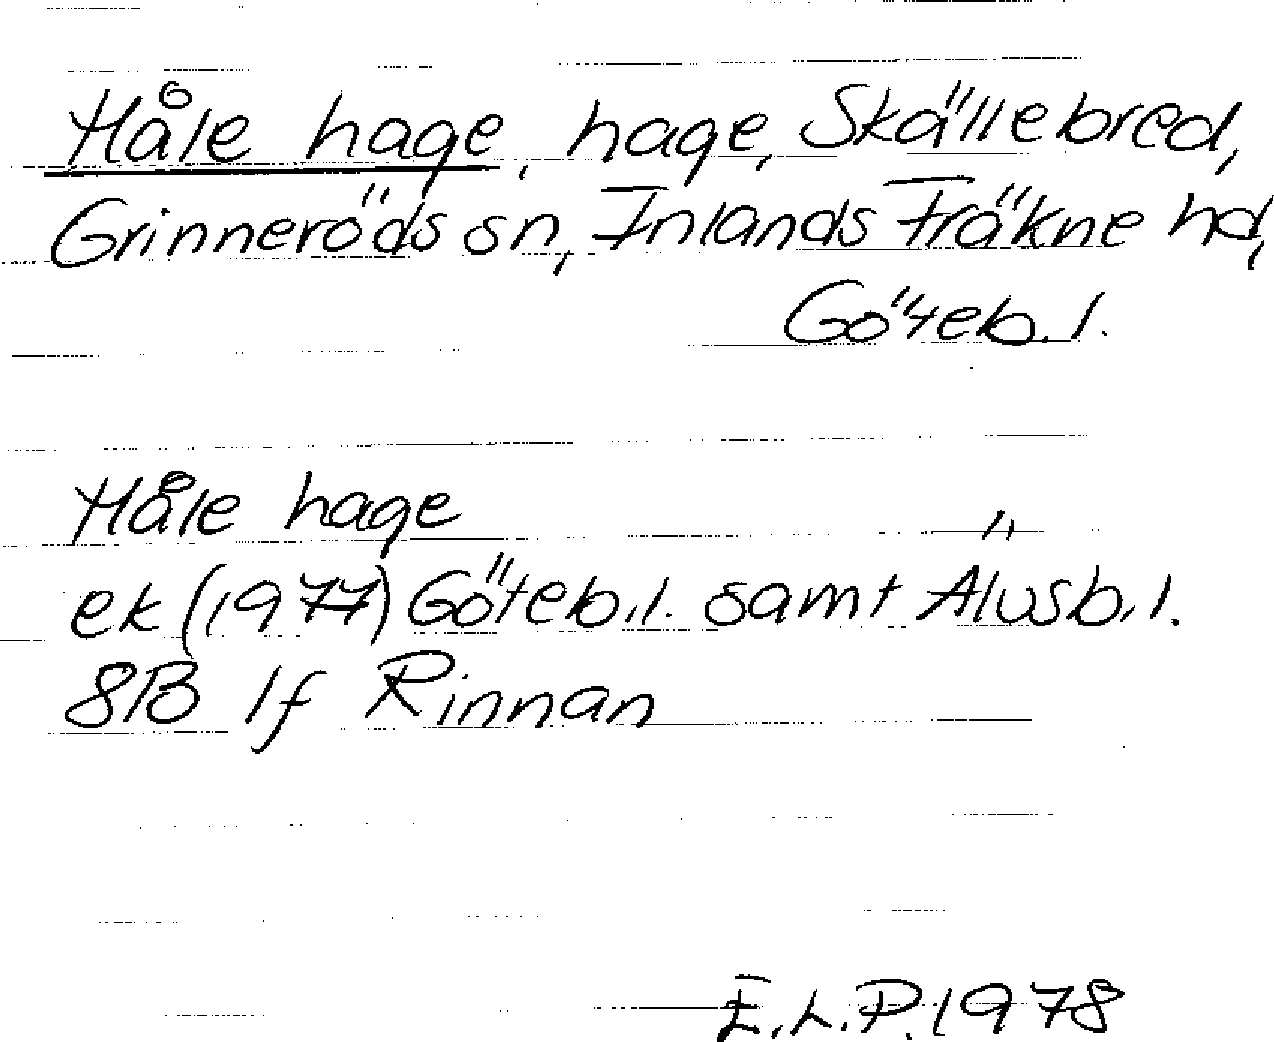 Håle hage, hage, Skällebred,
Grinneröds sn, Inlands Fräkne hd,
Göteb. l.
Håle hage
ek (1977) Göteb. l. samt Älvsb. l.
8B 1f Rinnan
E.L.P. 1978